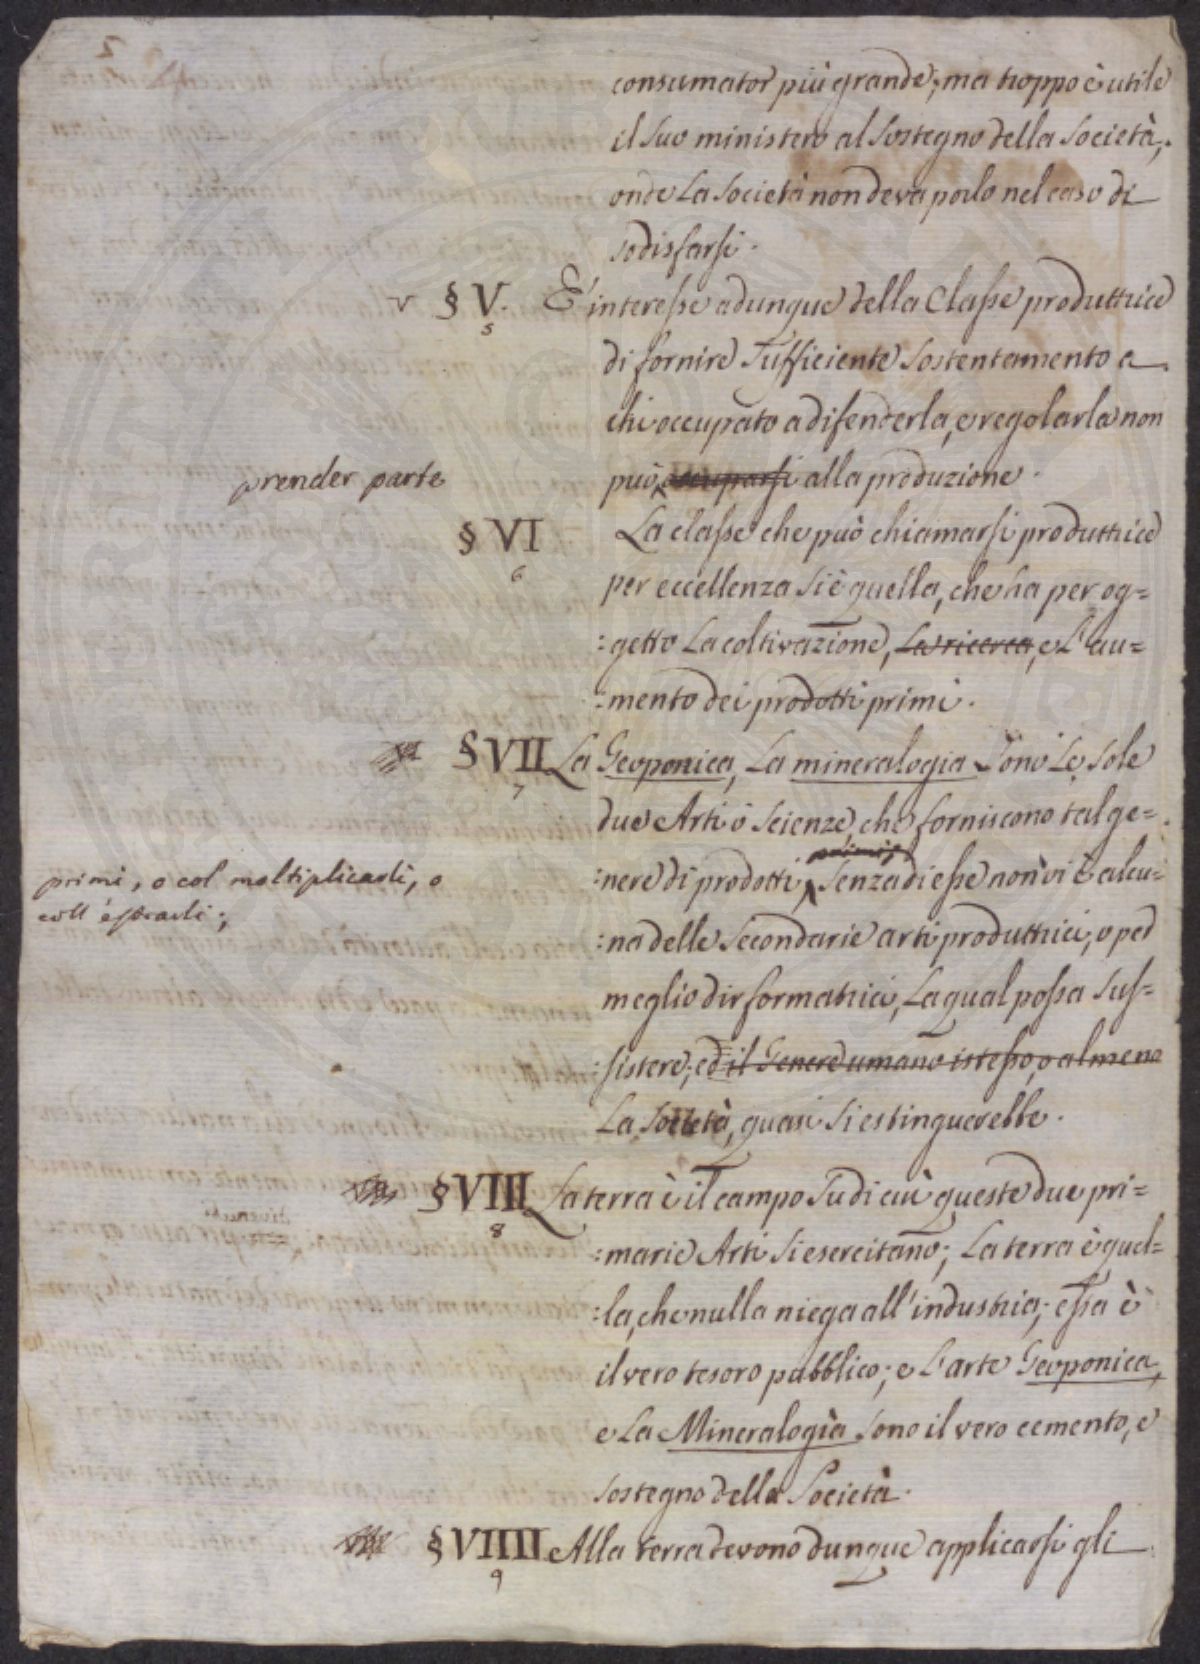 2
consumator più grande; ma troppo è utile
il suo ministero al sostegno della Società,
onde la Società non deva porlo nel caso di
sodisfarsi.
v § V. E' interesse adunque della Classe produttrice
5
di fornire sufficiente sostentamento a
chi occupato a difenderla, e regolarla non
prender parte
può occuparsi alla produzione.
§ VI La classe che può chiamarsi produttrice
6
per eccellenza si è quella, che ha per og=
:getto la coltivazione, la ricerca, e l'au=
:mento dei prodotti primi.
VI § VII La Geoponica, La mineralogia sono le sole
7
due Arti o Scienze, che forniscono tal ge=
primi
:nere di prodotti, senza di esse non vi è alcu=
primi, o col moltiplicarli, o
coll'estrarli;
:na delle secondarie arti produttrici, o per
meglio dir formatrici, la qual possa sus=
:sistere; ed il Genere umano istesso, o almeno
la Società, quasi si estinguerebbe.
§ VIII La terra è il campo su di cui queste due pri=
8
:marie Arti si esercitano; La terra è quel=
:la, che nulla niega all'industria; essa è
il vero tesoro pubblico; e l'arte Geoponica,
e la Mineralogia sono il vero cemento, e
sostegno della Società.
§ VIIII Alla terra devono dunque applicarsi gli
9